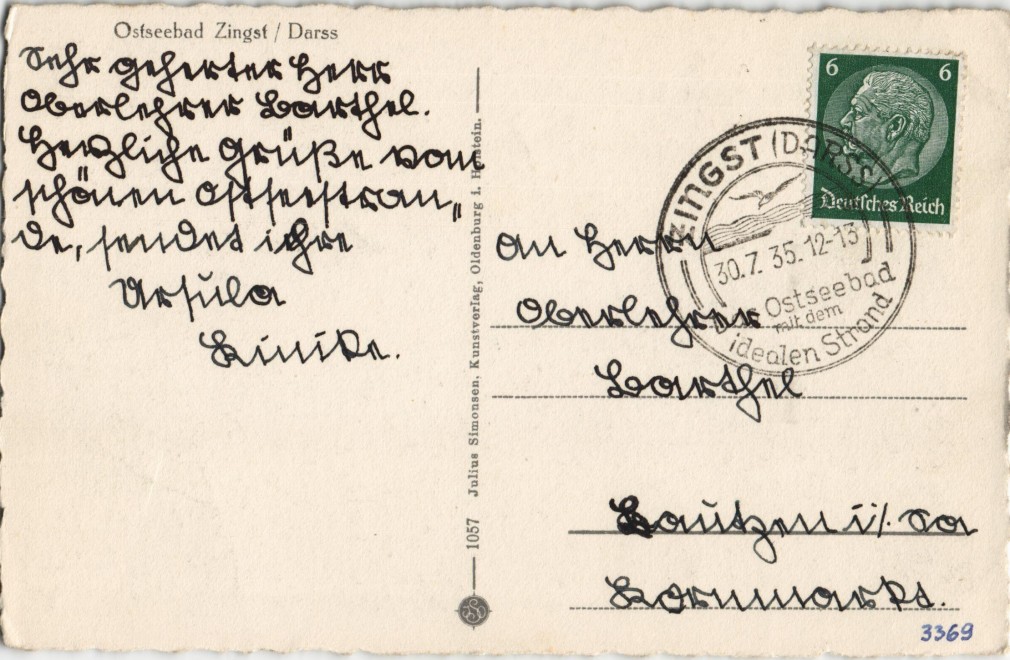 Ostseebad Zingst / Darss
Sehr geherter Herr
Oberlehrer Barthel.
Herzliche Grüße vom
schönen Ostseestran„
de, sendet ihre
Ursula
1057 Julius Simonsen, Kunstverlag, Oldenburg i. Holstein.
6 6
Deutsches Reich
ZINGST (DARSS)
30.7. 35. 12-13
Ostseebad
mit dem
idealen Strand
An Herrn
Oberlehrer
Barthel
Bautzen i/. Sa
Kornmarkt.
3369